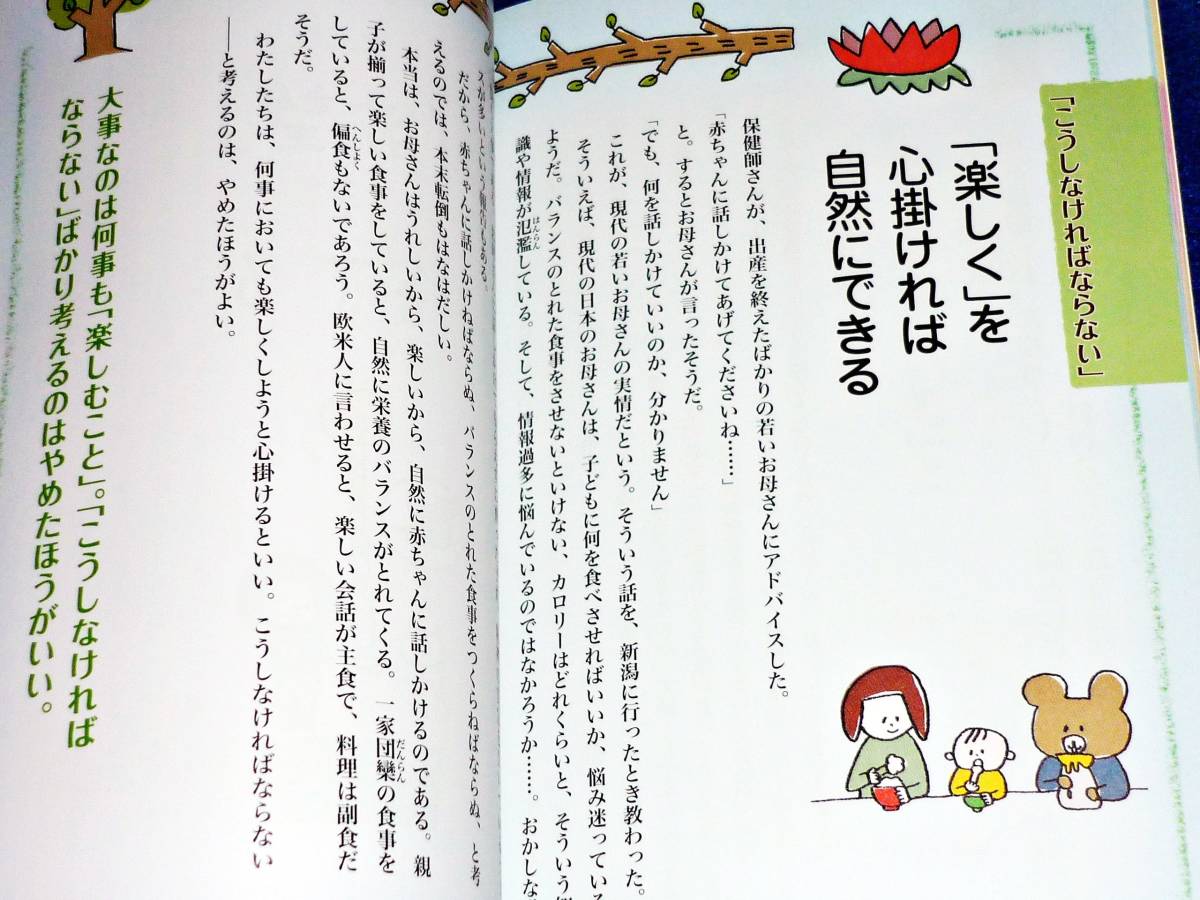 「こうしなければならない」
「楽しく」を
心掛ければ
自然にできる
保健師さんが、出産を終えたばかりの若いお母さんにアドバイスした。
「赤ちゃんに話しかけてあげてくださいね……」
と。するとお母さんが言ったそうだ。
「でも、何を話しかけていいのか、分かりません」
これが、現代の若いお母さんの実情だという。そういう話を、新潟に行ったとき教わった。
そういえば、現代の日本のお母さんは、子どもに何を食べさせればいいか、悩み迷っている
ようだ。バランスのとれた食事をさせないといけない、カロリーはどれくらいと、そういう
識や情報が氾濫している。そして、情報過多に悩んでいるのではなかろうか……。おかしな
スが多いという報告もある。
だから、赤ちゃんに話しかけねばならぬ、バランスのとれた食事をつくらねばならぬ、と考
えるのでは、本末転倒もはなはだしい。
本当は、お母さんはうれしいから、楽しいから、自然に赤ちゃんに話しかけるのである。親
子が揃って楽しい食事をしていると、自然に栄養のバランスがとれてくる。一家団欒の食事を
していると、偏食もないであろう。欧米人に言わせると、楽しい会話が主食で、料理は副食だ
そうだ。
わたしたちは、何事においても楽しくしようと心掛けるといい。こうしなければならない
――と考えるのは、やめたほうがよい。
大事なのは何事も「楽しむこと」。「こうしなければ
ならない」ばかり考えるのはやめたほうがいい。